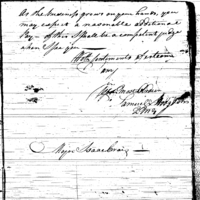 As the business grows on your hands, you
may expect a reasonable additional
Pay - of this I shall be a competent judge
when I see you
With sentiments of esteem
I am
Samuel Hodgdon
Q M G
Major Isaac Craig